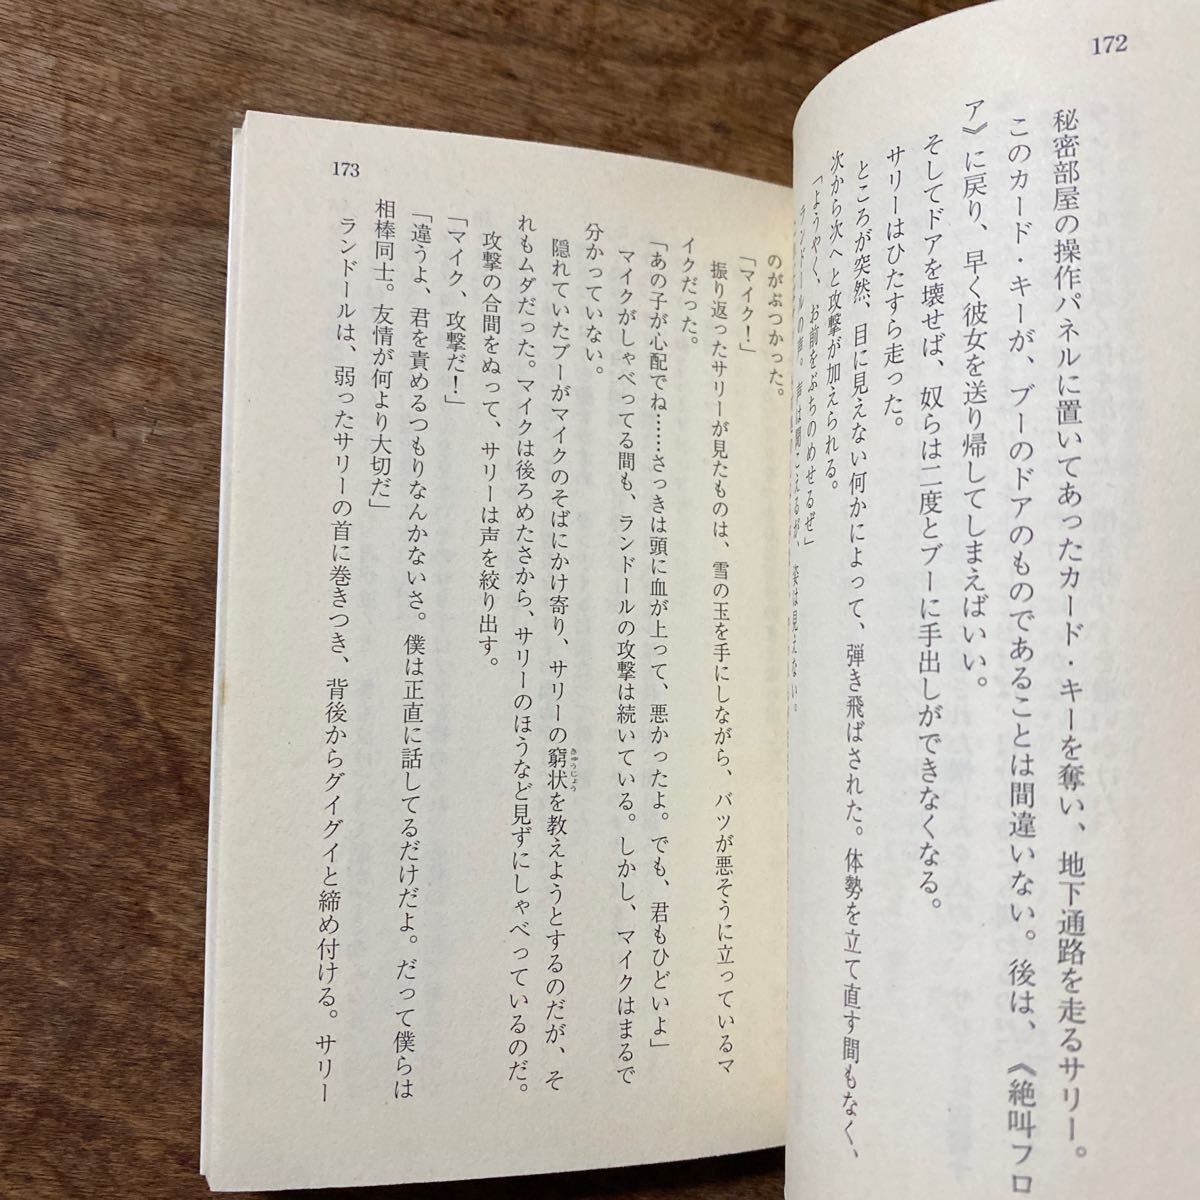 172
秘密部屋の操作パネルに置いてあったカード・キーを奪い、地下通路を走るサリー。
このカード・キーが、ブーのドアのものであることは間違いない。後は、《絶叫フロ
ア》に戻り、早く彼女を送り帰してしまえばいい。
そしてドアを壊せば、奴らは二度とブーに手出しができなくなる。
サリーはひたすら走った。
ところが突然、目に見えない何かによって、弾き飛ばされた。体勢を立て直す間もなく、
次から次へと攻撃が加えられる。
「ようやく、お前をぶちのめせるぜ」
ランドールの声。声は聞こえるが、姿は見えない。
のがぶつかった。
「マイク！」
振り返ったサリーが見たものは、雪の玉を手にしながら、バツが悪そうに立っているマ
イクだった。
「あの子が心配でね……さっきは頭に血が上って、悪かったよ。でも、君もひどいよ」
マイクがしゃべってる間も、ランドールの攻撃は続いている。しかし、マイクはまるで
分かっていない。
隠れていたブーがマイクのそばにかけ寄り、サリーの窮状きゅうじょうを教えようとするのだが、そ
れもムダだった。マイクは後ろめたさから、サリーのほうなど見ずにしゃべっているのだ。
攻撃の合間をぬって、サリーは声を絞り出す。
「マイク、攻撃だ！」
「違うよ、君を責めるつもりなんかないさ。僕は正直に話してるだけだよ。だって僕らは
相棒同士。友情が何より大切だ」
ランドールは、弱ったサリーの首に巻きつき、背後からグイグイと締め付ける。サリー
173